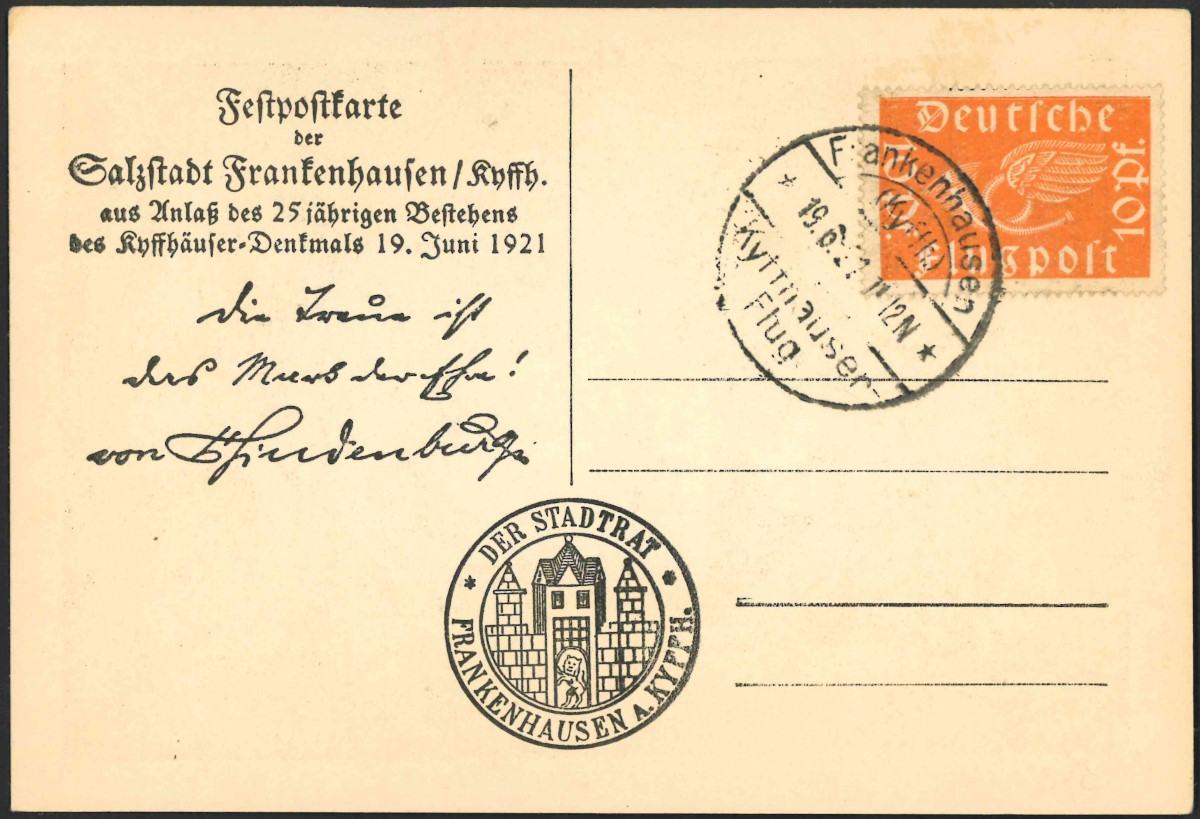 Festpostkarte
der
Salzstadt Frankenhausen/Kyffh.
aus Anlaß des 25 jährigen Bestehens
des Kyffhäuser-Denkmals 19. Juni 1921
Die Treue ist
das Mark der Ehre!
von Hindenburg
Deutsche
Flugpost
10 Pf.
Frankenhausen
(Kyffh)
* 19.6.21 11-12N *
Kyffhäuser-
Flug
* DER STADTRAT *
FRANKENHAUSEN A. KYFFH.